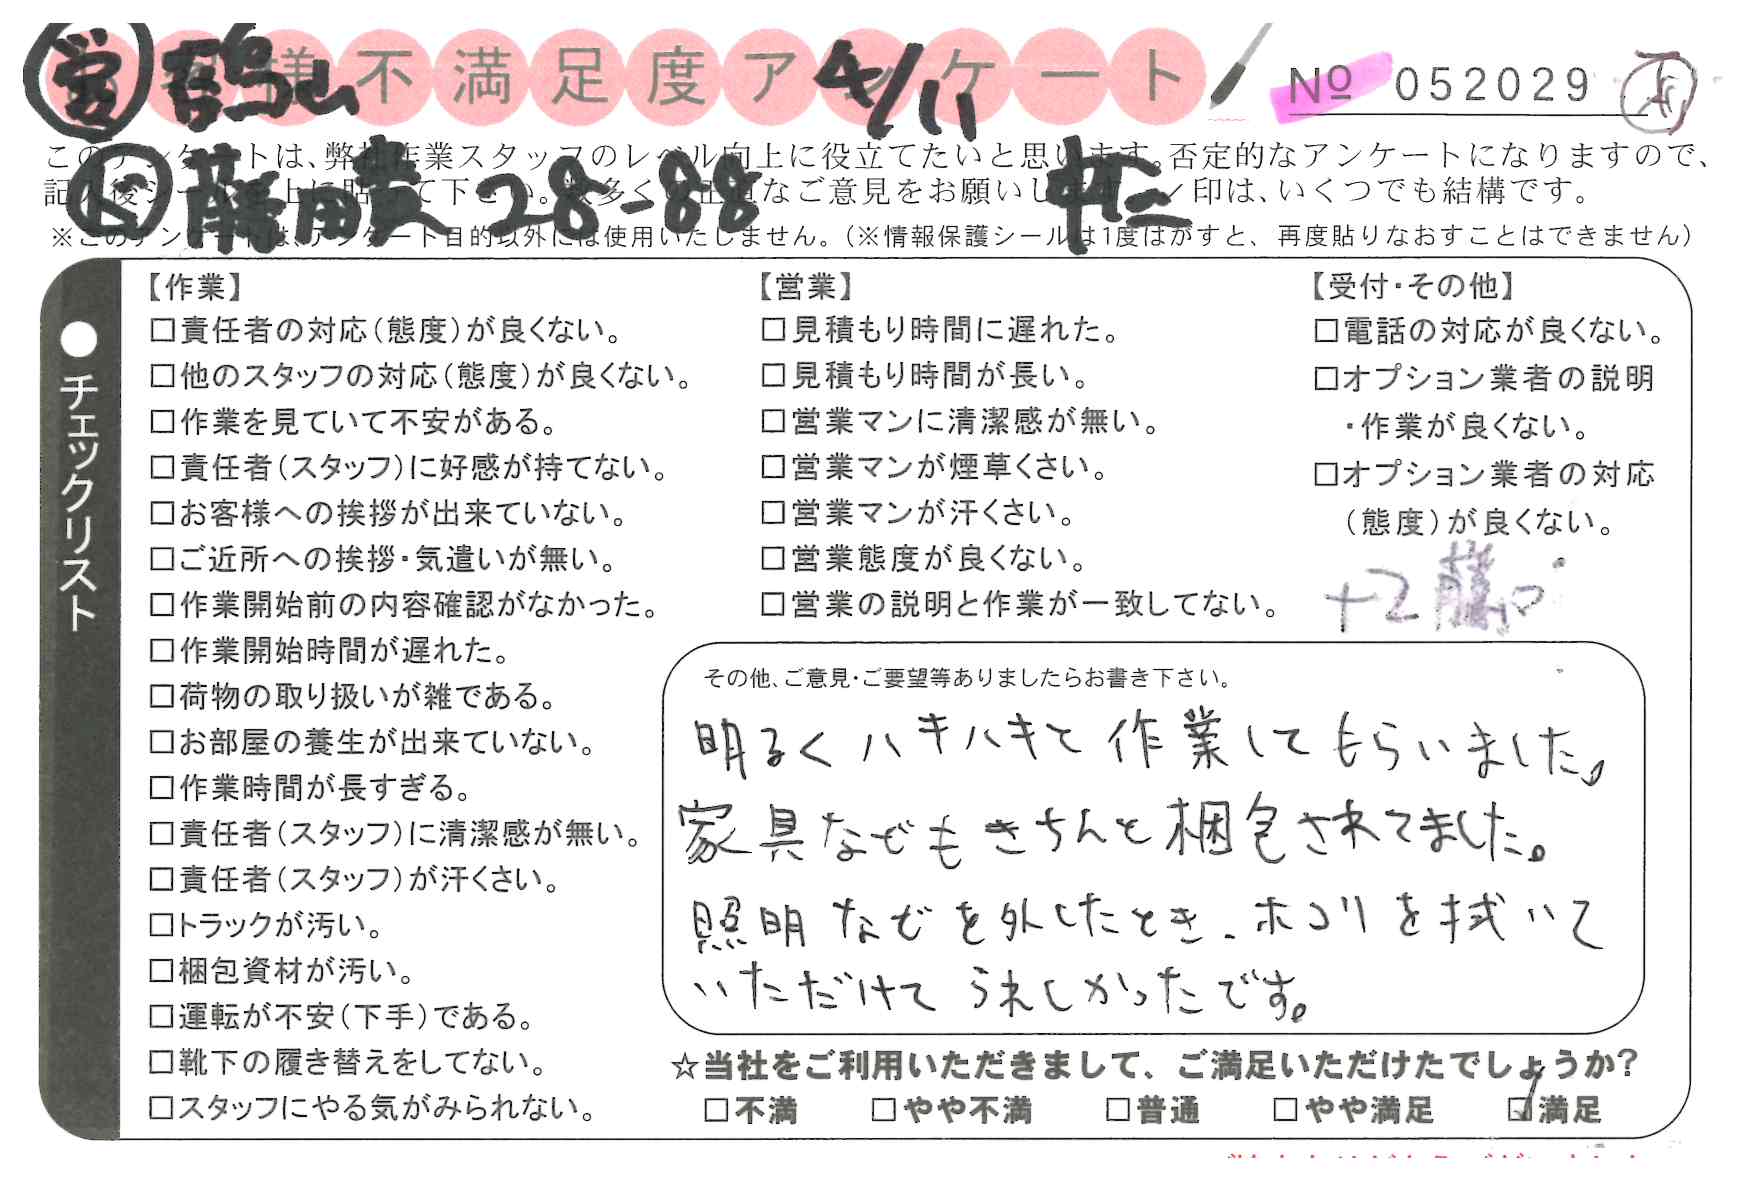 様不満足度アンケート
4/11
No 052029
このアンケートは、弊社作業スタッフのレベル向上に役立てたいと思います。否定的なアンケートになりますので、
記入後シールを上に貼って下さい。数多くの正直なご意見をお願いします。✓印は、いくつでも結構です。
28-88
※このアンケートは、アンケート目的以外には使用いたしません。(※情報保護シールは1度はがすと、再度貼りなおすことはできません)
●チェックリスト
【作業】
□責任者の対応(態度)が良くない。
□他のスタッフの対応(態度)が良くない。
□作業を見ていて不安がある。
□責任者(スタッフ)に好感が持てない。
□お客様への挨拶が出来ていない。
□ご近所への挨拶・気遣いが無い。
□作業開始前の内容確認がなかった。
□作業開始時間が遅れた。
□荷物の取り扱いが雑である。
□お部屋の養生が出来ていない。
□作業時間が長すぎる。
□責任者(スタッフ)に清潔感が無い。
□責任者(スタッフ)が汗くさい。
□トラックが汚い。
□梱包資材が汚い。
□運転が不安(下手)である。
□靴下の履き替えをしてない。
□スタッフにやる気がみられない。
【営業】
□見積もり時間に遅れた。
□見積もり時間が長い。
□営業マンに清潔感が無い。
□営業マンが煙草くさい。
□営業マンが汗くさい。
□営業態度が良くない。
□営業の説明と作業が一致してない。
【受付・その他】
□電話の対応が良くない。
□オプション業者の説明
・作業が良くない。
□オプション業者の対応
(態度)が良くない。
+2
その他、ご意見・ご要望等ありましたらお書き下さい。
明るくハキハキと作業してもらいました。
家具などもきちんと梱包されてました。
照明などを外したとき、ホコリを拭いて
いただけてうれしかったです。
☆当社をご利用いただきまして、ご満足いただけたでしょうか?
□不満 □やや不満 □普通 □やや満足 ☑満足